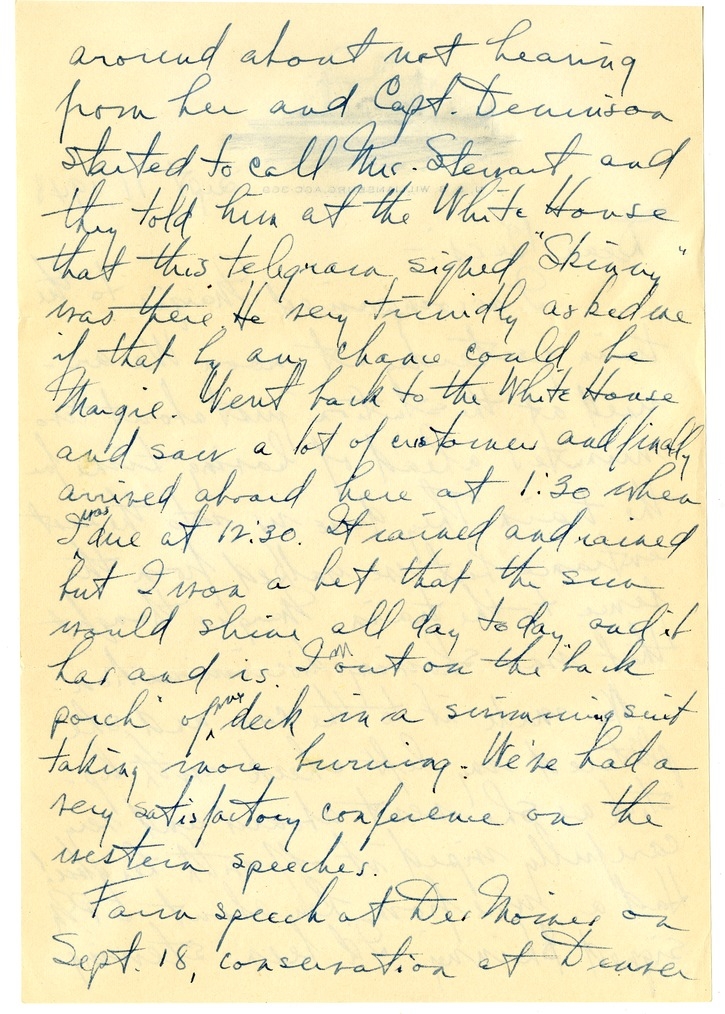 around about not hearing
from her and Capt. Dennison
started to call Mr. Stewart and
they told him at the White House
that this telegram signed "Skinny"
was there. He very timidly asked me
if that by any chance could be
Margie. Went back to the White House
and saw a lot of customers and finally
arrived aboard here at 1:30 when
I was due at 12:30. It rained and rained
but I won a bet that the sun
would shine all day today and it
has and is. I'm out on the back
porch of my deck in a swimming suit
taking more burning. We've had a
very satisfactory conference on the
western speeches.
Farm speech at Des Moines on
Sept. 18, conservation at Denver